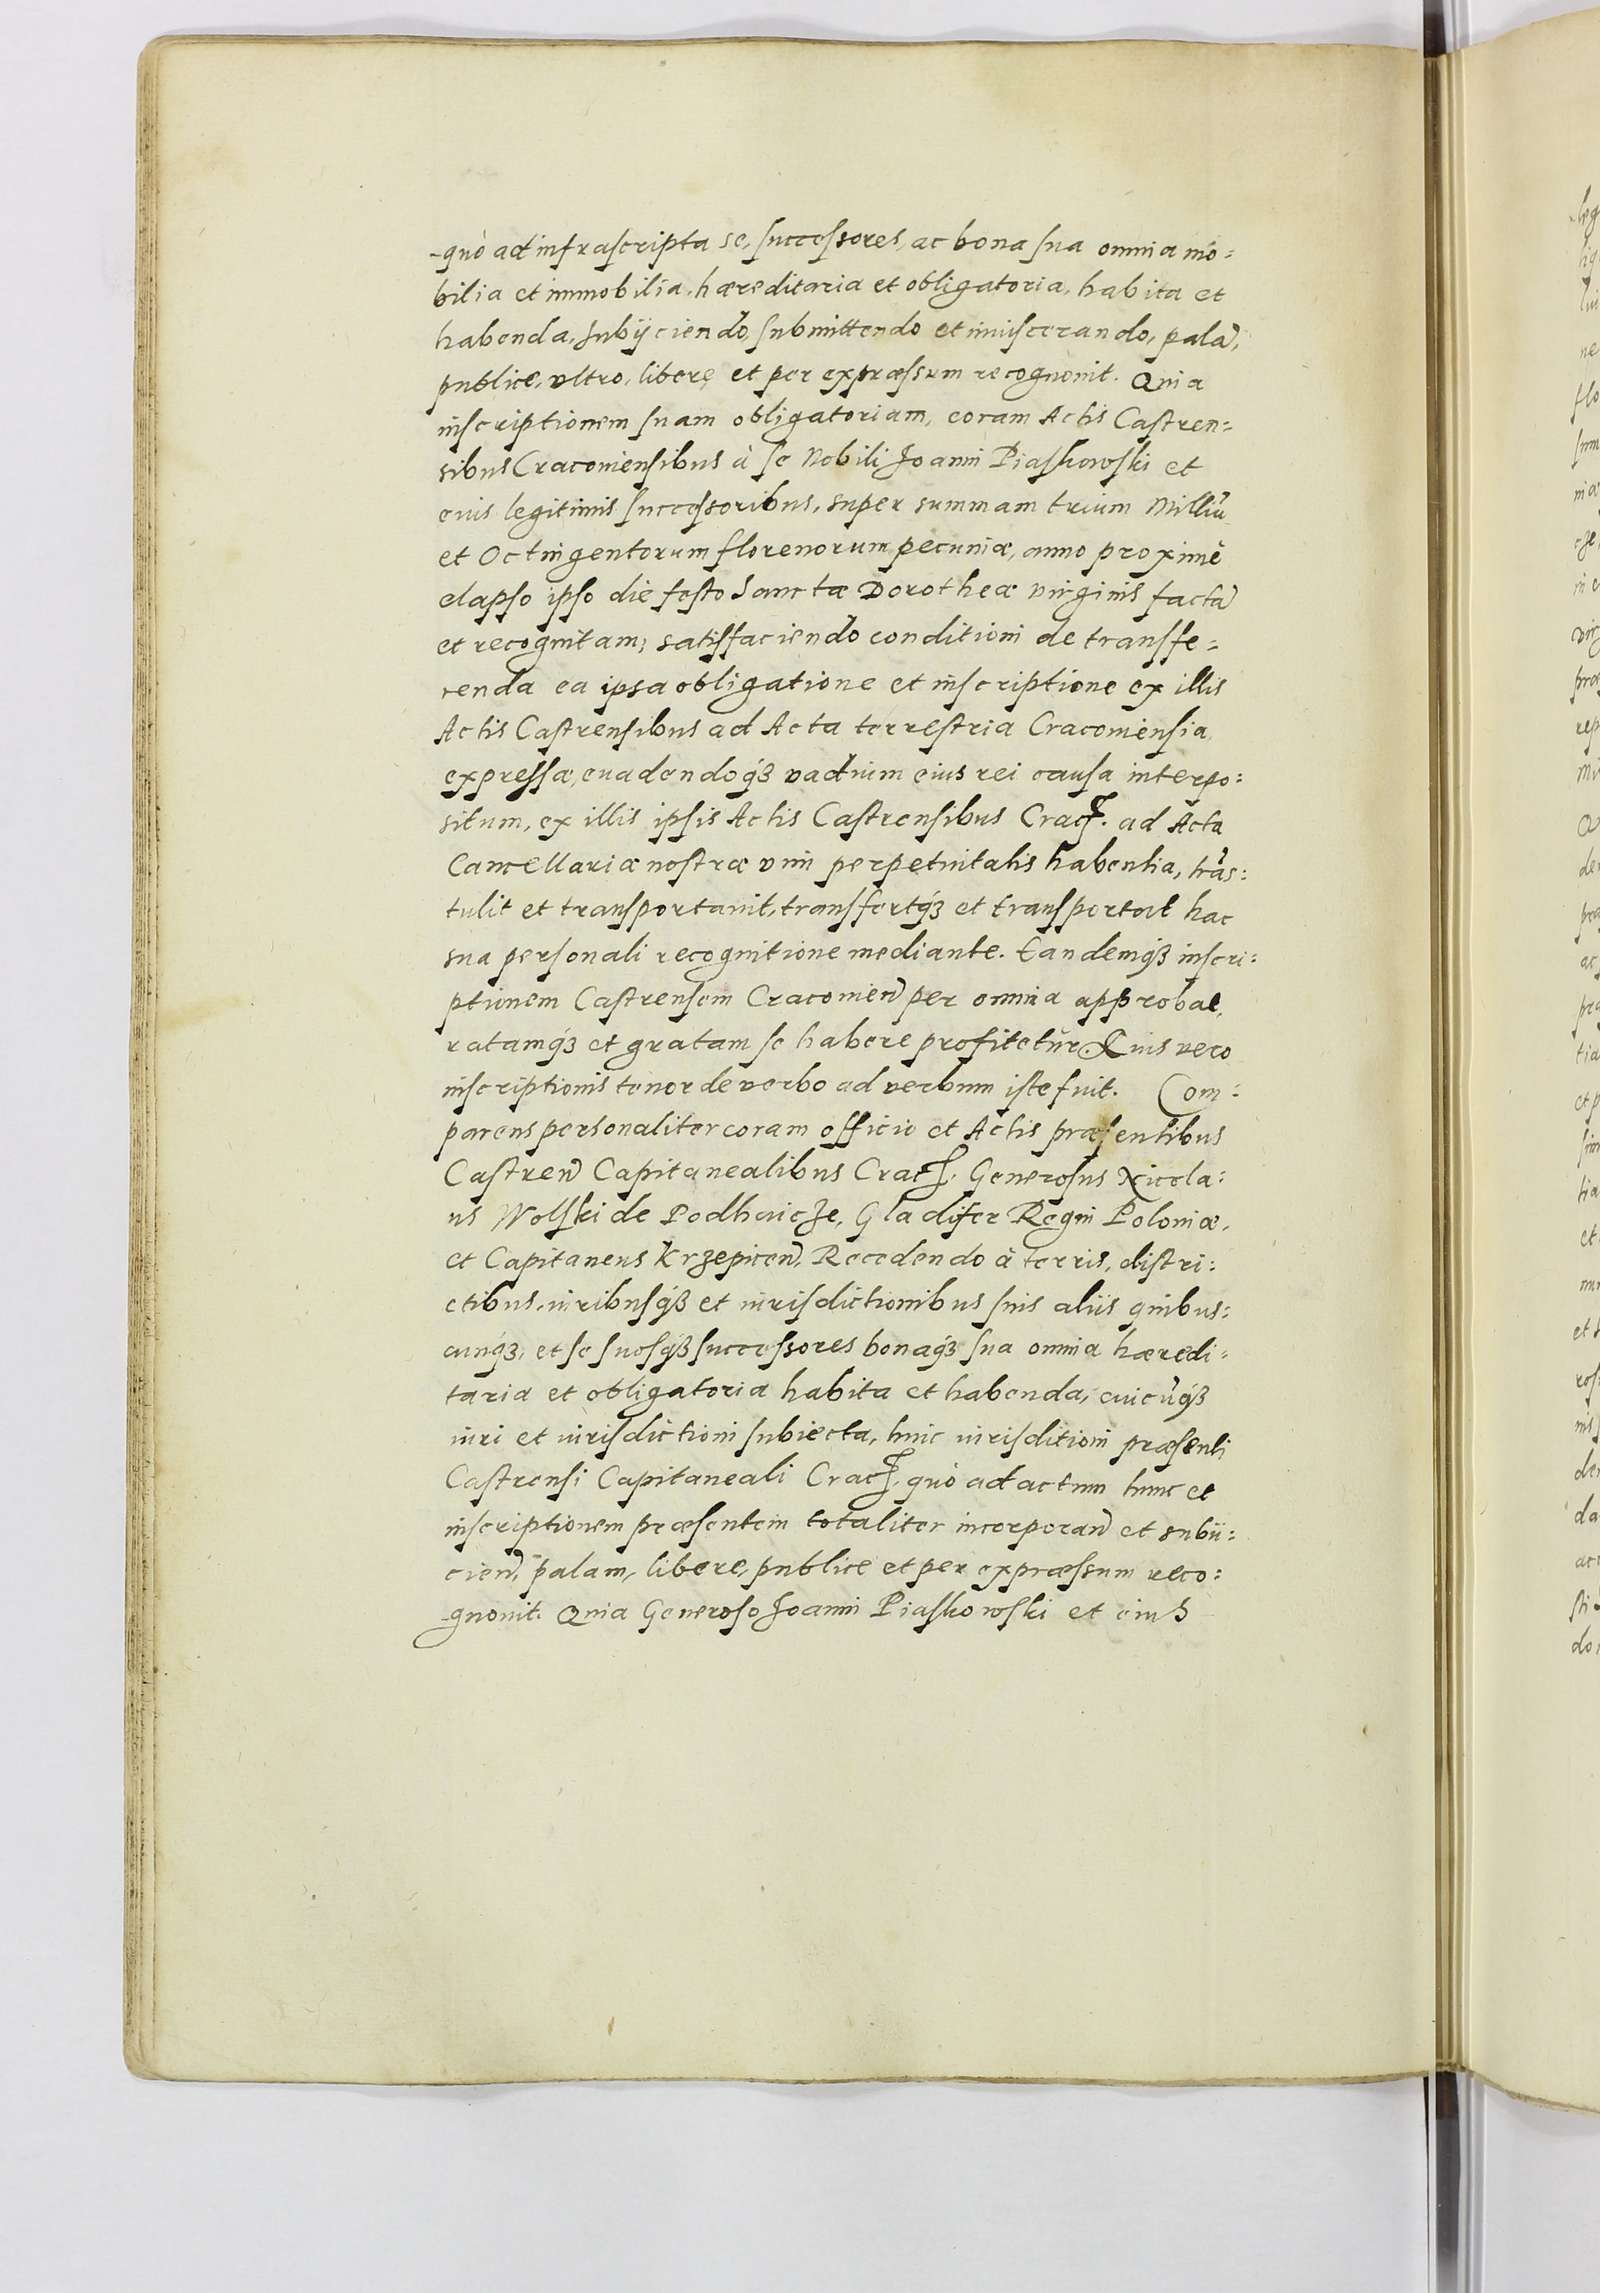 -quò ad infrascripta se, successores, ac bona sua omnia mo:
bilia et immobilia, hæreditaria et obligatoria, habita et
habenda, subijciendo, submittendo et inviscerando, palã,
publice, vltro, libere et per expræssum recognovit. Quia
inscriptionem suam obligatoriam, coram Actis Castren:
sibus Cracoviensibus à se Nobili Joanni Piaskowski et
eius legitimis successoribus, super summam trium Milliũ
et Octingentorum florenorum pecuniæ, anno proximè
elapso ipso die festo Sanctæ Dorotheæ virginis factã
et recognitam; satisfaciendo conditioni de transfe:
renda ea ipsa obligatione et inscriptione ex illis
Actis Castrensibus ad Acta terrestria Cracoviensia
expressæ, evadendoqȝ vadium eius rei causa interpo:
situm, ex illis ipsis Actis Castrensibus Cracꝭ. ad Acta
Cancellariæ nostræ vim perpetuitatis habentia, trãs:
tulit et transportavit, transfertqȝ et transportat hac
sua personali recognitione mediante. Eandemqȝ inscri:
ptionem Castrensem Cracovień per omnia approbat,
ratamqȝ et gratam se habere profitetur. Cuius vero
inscriptionis tenor de verbo ad verbum iste fuit. Com:
parens personaliter coram officio et Actis præsentibus
Castreń Capitanealibus Cracꝭ. Generosus Nicola:
us Wolski de Podhaicze, Gladifer Regni Poloniæ,
et Capitaneus Krzepiceń, Recedendo à terris, distri:
ctibus, iuribusqȝ et iurisdictionibus suis aliis quibus:
cunqȝ, et se suosqȝ successores bonaqȝ sua omnia hæredi:
taria et obligatoria habita et habenda, cuicũqȝ
iuri et iurisdictioni subiecta, huic iurisditioni præsenti
Castrensi Capitaneali Cracꝭ. quò ad actum hunc et
inscriptionem præsentem totaliter incorporań et subii:
cień, palam, libere, publice et per expræssum reco:
-gnovit. Quia Generoso Joanni Piaskowski et eius